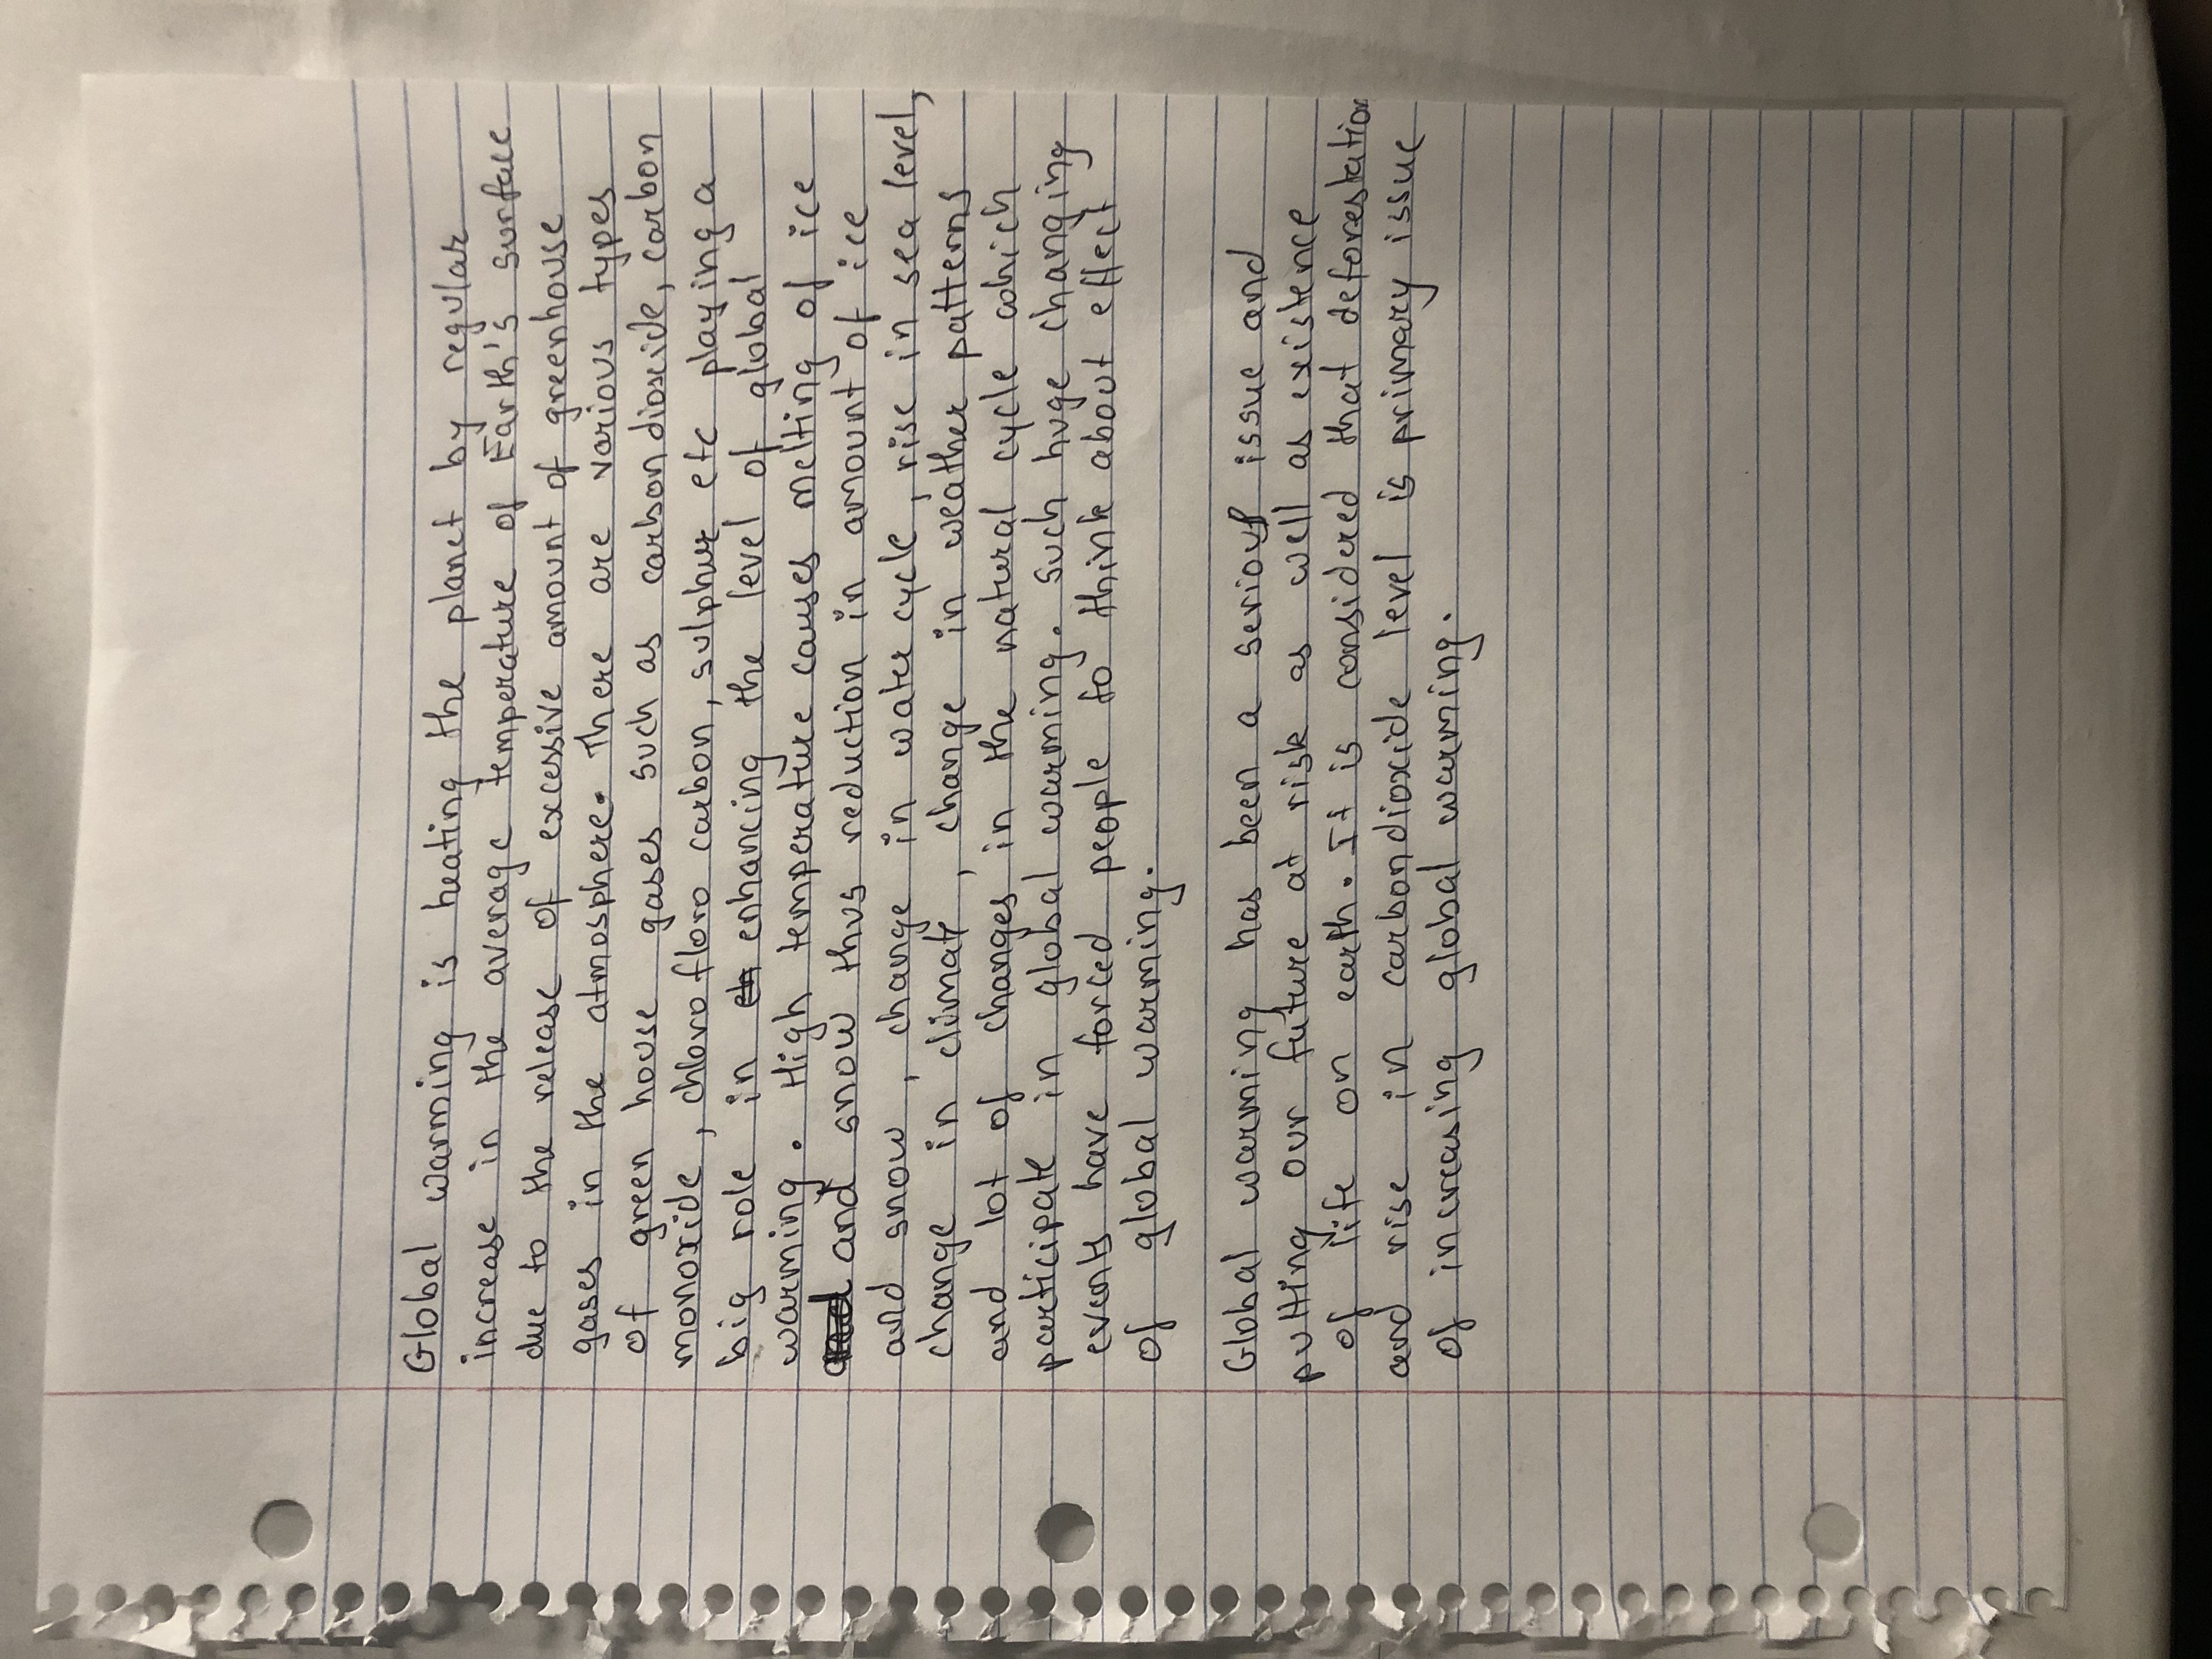 Global warming is heating the planet by regular
increase in the average temperature of Earth's surface
due to the release of excessive amount of greenhouse
gases in the atmosphere. There are various types
of green house gases such as carbondioxide, carbon
monoxide, chloro floro carbon, sulphur etc playing a
big role in eh enhancing the level of global
warming. High temperature causes melting of ice
and and snow thus reduction in amount of ice
and snow, change in water cycle, rise in sea level,
change in climate, change in weather patterns
and lot of changes in the natural cycle which
participate in global warming. Such huge changing
events have forced people to think about effect
of global warming.
Global warming has been a serious issue and
putting our future at risk as well as existence
of life on earth. It is considered that deforestation
and rise in carbondioxide level is primary issue
of increasing global warming.